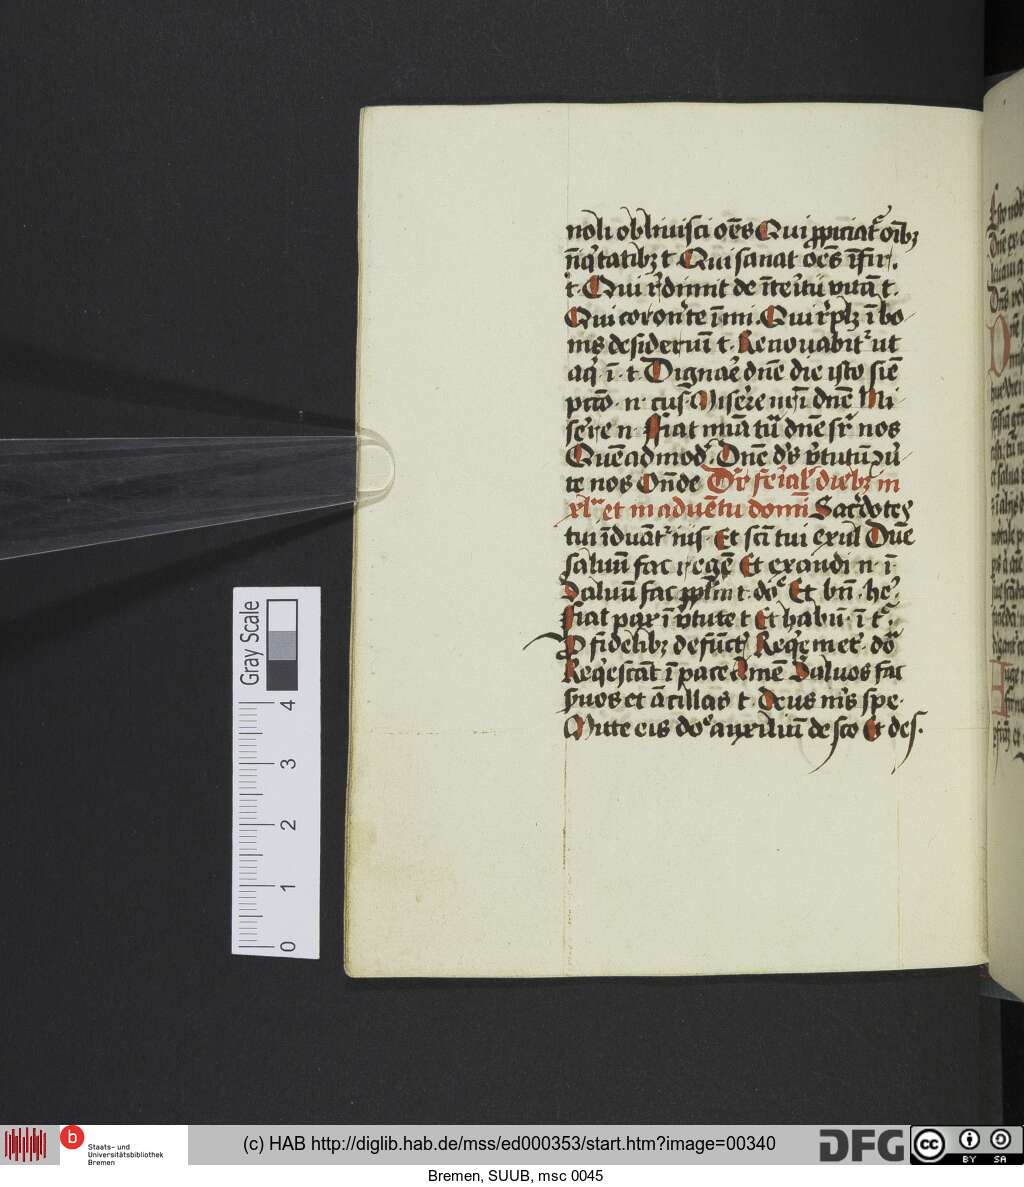 noli obliuisci oēs Qui ꝓpiciat᷑ oībꝫ
īiq'tatibꝫ t· Qui sanat oēs īfir·
t· Qui r'dimit de īte'itu uitā t·
Qui coron'te ī mi· Qui r'plꝫ ī bo
nis desideriū t· Renouabit᷑ ut
aq' ī· t· Dignae' dn̄e die isto siē
pctō· n· cus' Mise're nr̄i dn̄e Mi
se're n· Fiat mīa tū dn̄e sr' nos
Quēadmod' Dn̄e d's v'tutū
te nos On̄de fe'ial' diebꝫ in
et in aduētu domī Sac'dotes
tui īduāt᷑ iūs· Et scī tui exul Dn̄e
saluū fac regē Et exaudi n· ī·
Saluū fac pplm t· do' Et bn̄· he'·
Fiat pax ī v'tute t· Et habū· ī t'·
P fidelibꝫ defūct' Req'em et'· do'
Req'escāt ī pace Amē Saluos fac
suos et ācillas t· Deus m's spe·
Mitte eis do' auxiliū de sco Et des·
Gray Scale
4
3
2
1
0
b Staats- und
Universitätsbibliothek
Bremen
(c) HAB http://diglib.hab.de/mss/ed000353/start.htm?image=00340
DFG
cc BY SA
Bremen, SUUB, msc 0045